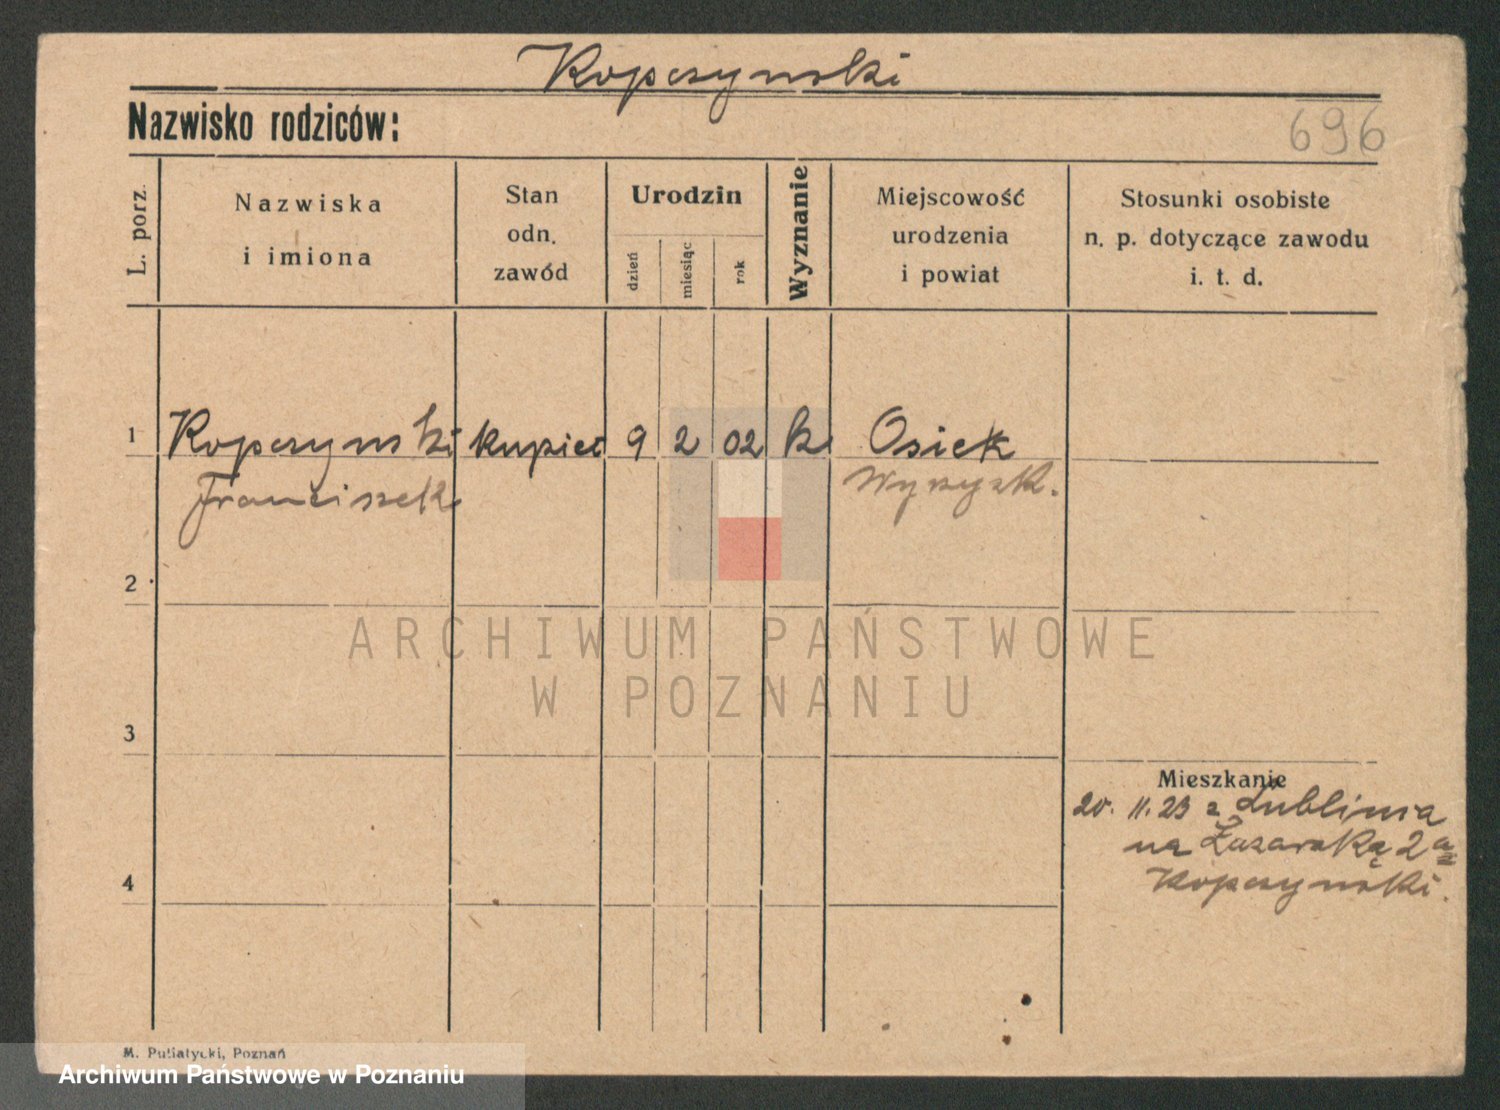 Kopczynski
Nazwisko rodziców:
696
L. porz.
Nazwiska
i imiona
Stan
odn.
zawód
Urodzin
dzień
miesiąc
rok
Wyznanie
Miejscowość
urodzenia
i powiat
Stosunki osobiste
n. p. dotyczące zawodu
i. t. d.
1 Kopczynski kupiec 9 2 02 k. Osiek
Franciszek Wyrzysk.
2
ARCHIWUM PAŃSTWOWE
W POZNANIU
3
Mieszkanie
20. 11. 23 z Lublina
na Łazarską 2a
Kopczynski.
4
M. Putiatycki, Poznań
Archiwum Państwowe w Poznaniu